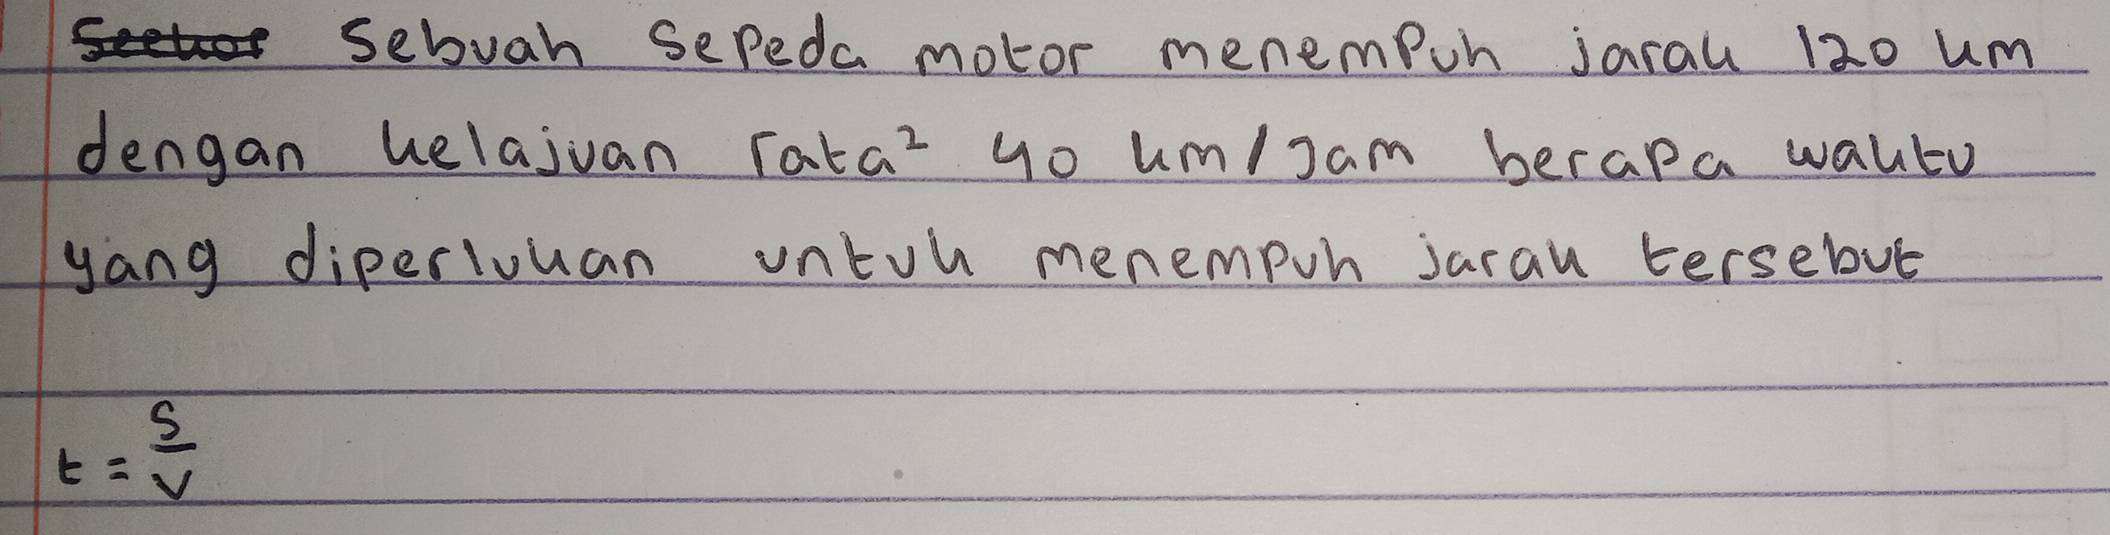 Sebuah sepeda motor menempuh jarak 120 km
dengan kelajuan rata² 40 km/jam berapa waktu
yang diperlukan untuk menempuh jarak tersebut
t = s/v